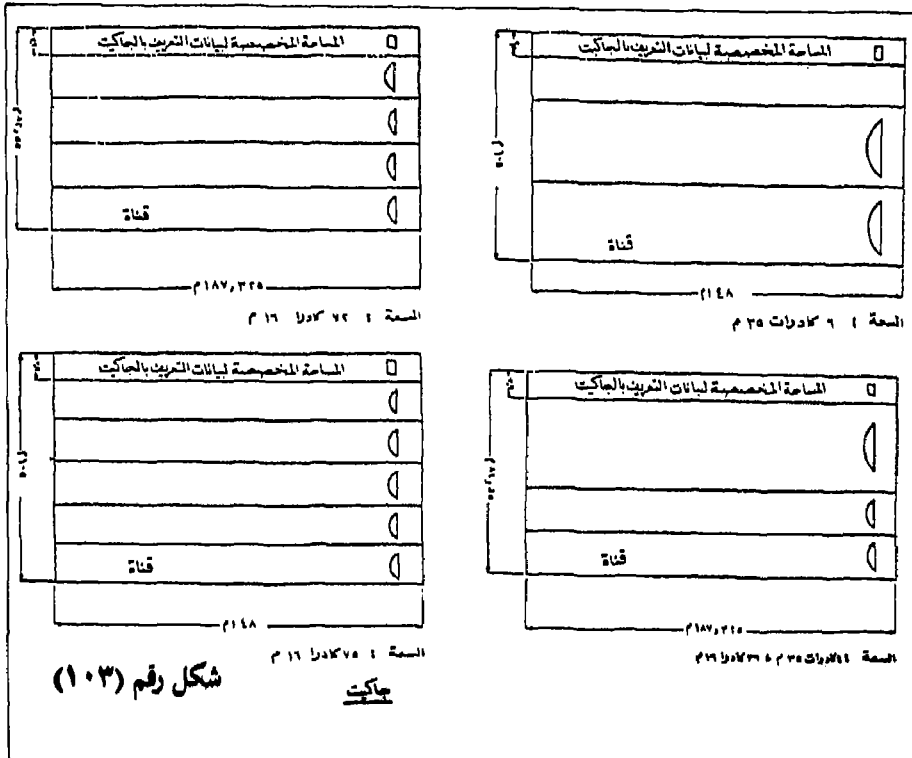 المساحة المخصصة لبيانات التعريف بالجاكيت
قناة
١٤٨م
السعة : ٩ كادرات ٣٥ م
المساحة المخصصة لبيانات التعريف بالجاكيت
قناة
١٨٧,٣٢٥م
السعة : ٧٢ كادرا ١٦ م
المساحة المخصصة لبيانات التعريف بالجاكيت
قناة
١٨٧,٣٢٥م
السعة : ٤ كادرات ٣٥ م
المساحة المخصصة لبيانات التعريف بالجاكيت
قناة
١٤٨م
السعة : ٧٥ كادرا ١٦ م
جاكيت
شكل رقم (١٠٣)